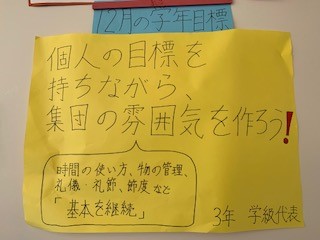 12月の学年目標
個人の目標を
持ちながら、
集団の雰囲気を作ろう!
時間の使い方、物の管理、
礼儀・礼節、節度など
「基本を継続」
3年 学級代表